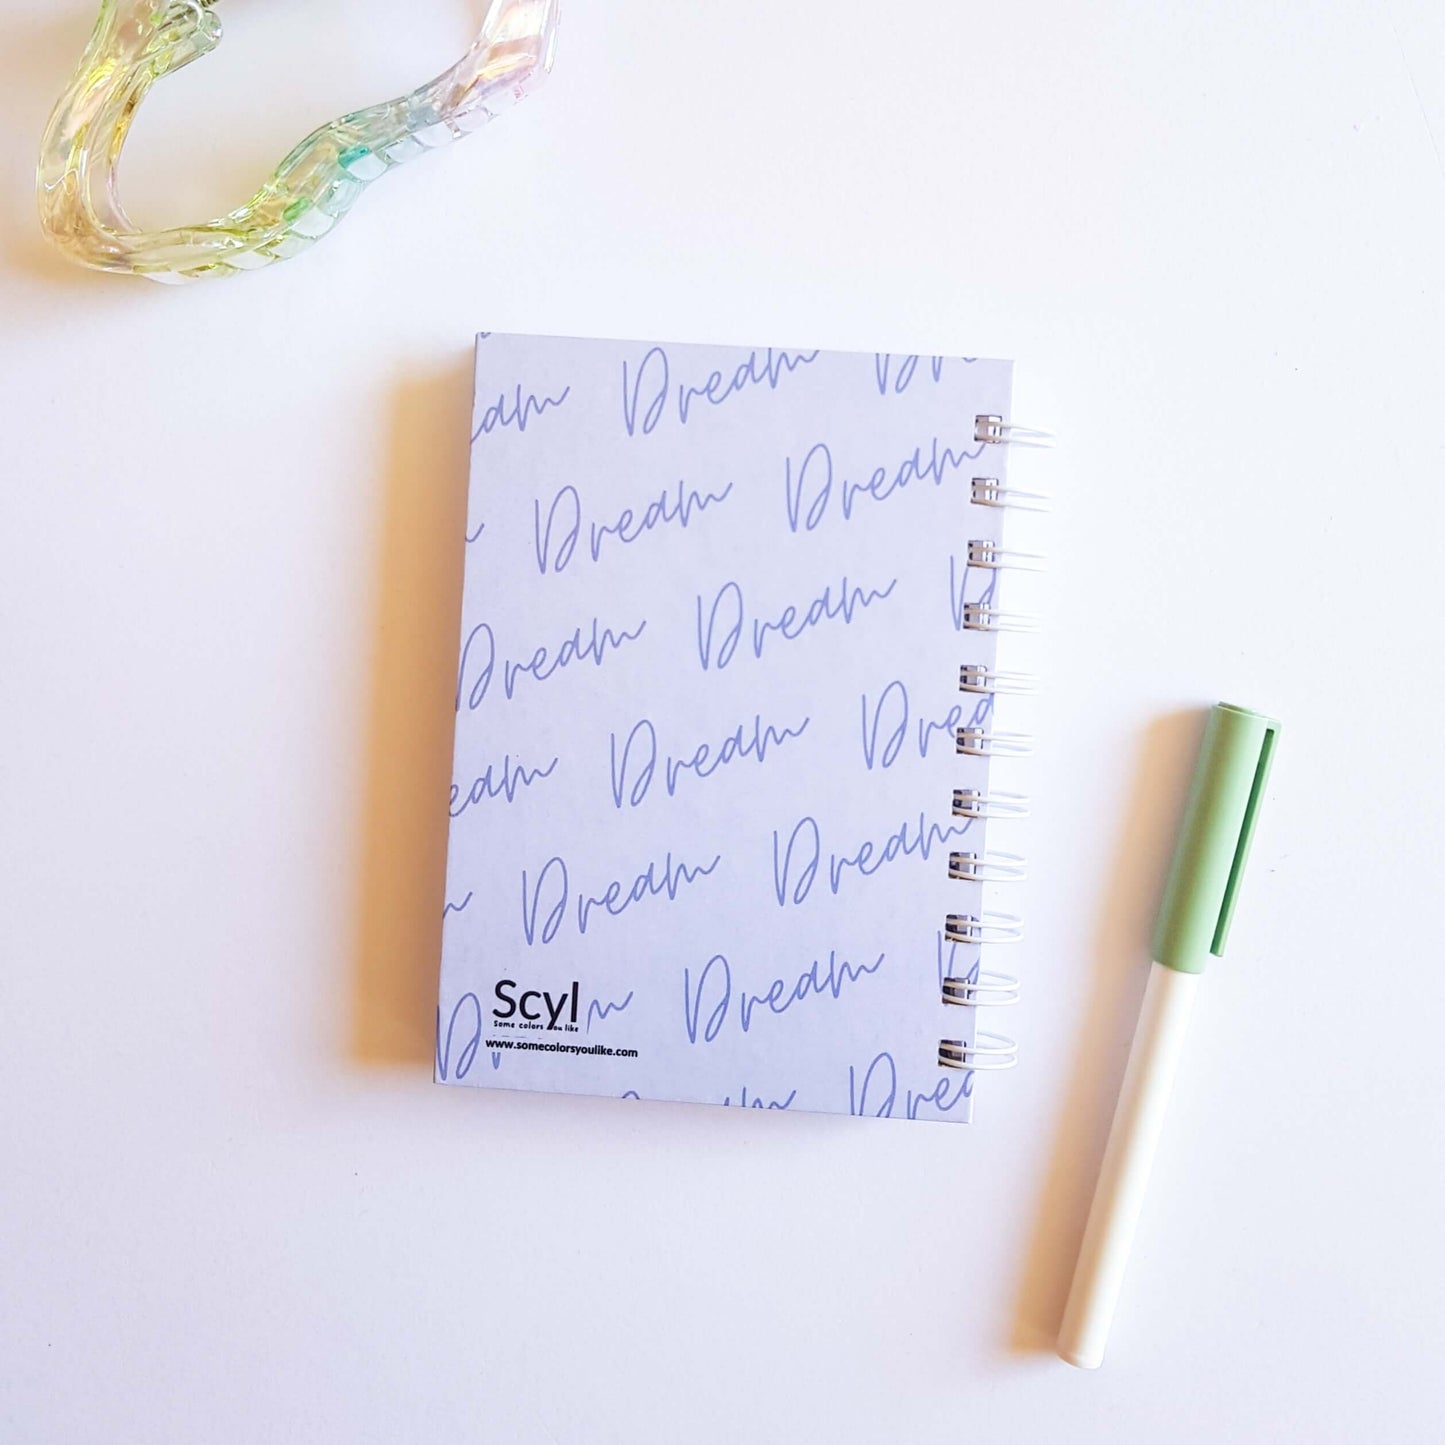 eam Dream Dr
m Dream Dream
Dream Dream D
eam Dream Drea
m Dream Dream
D m Dream D
Scyl
Some colors you like
www.somecolorsyoulike.com
Drea